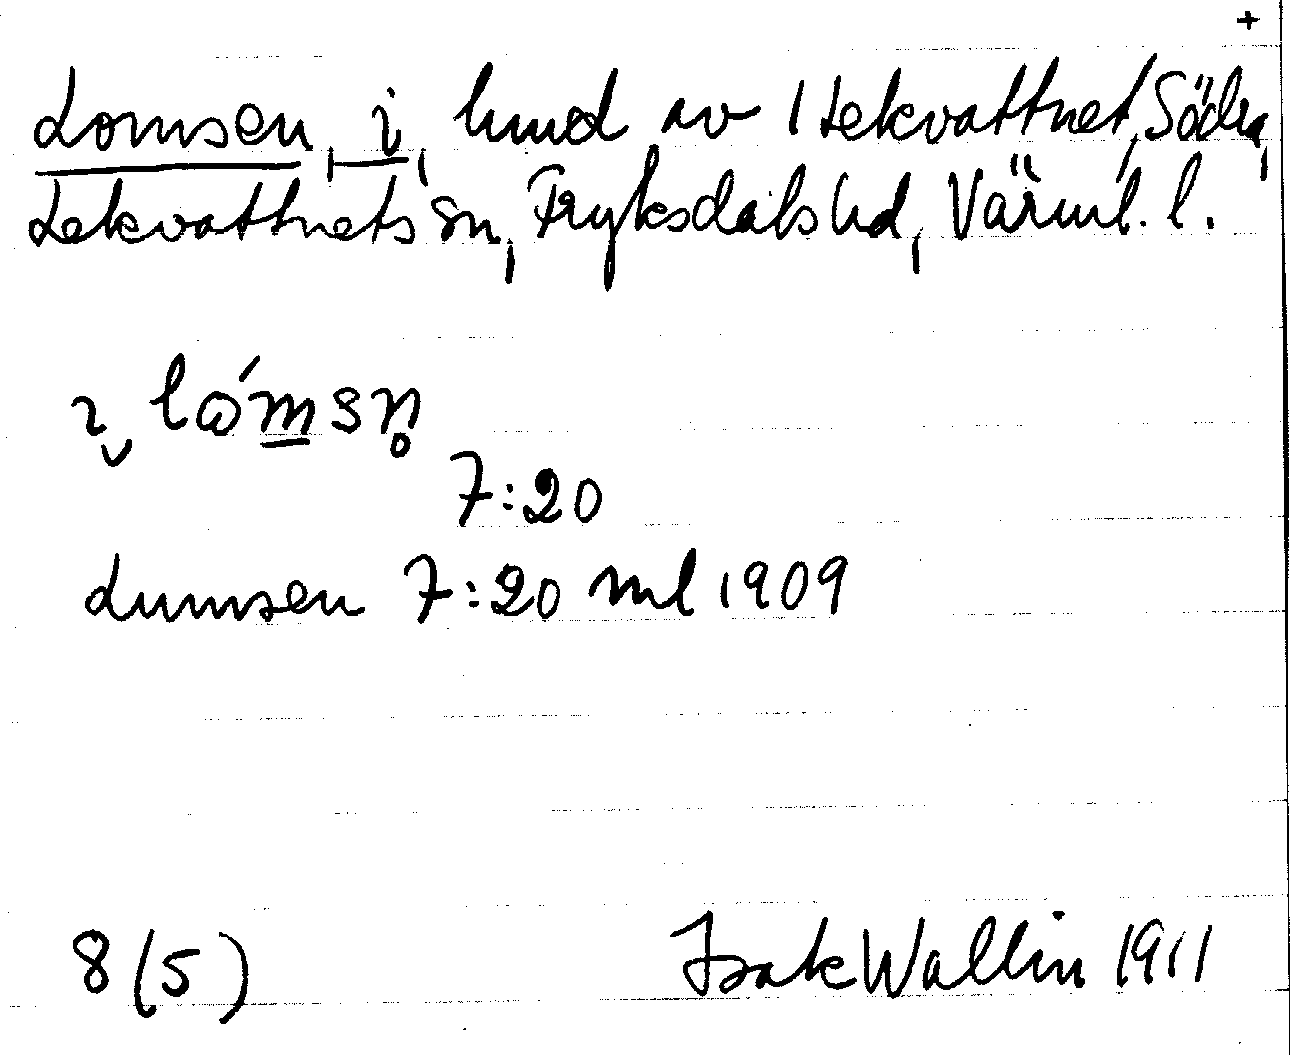 +
Lomsen, i, hmd av 1 Lekvattnet, Södra,
Lekvattnets sn, Fryksdals hd, Värml. l.
ɩ lǻmsn̥
7:20
Lumsen 7:20 ml 1909
8 (5) Isak Wallin 1911